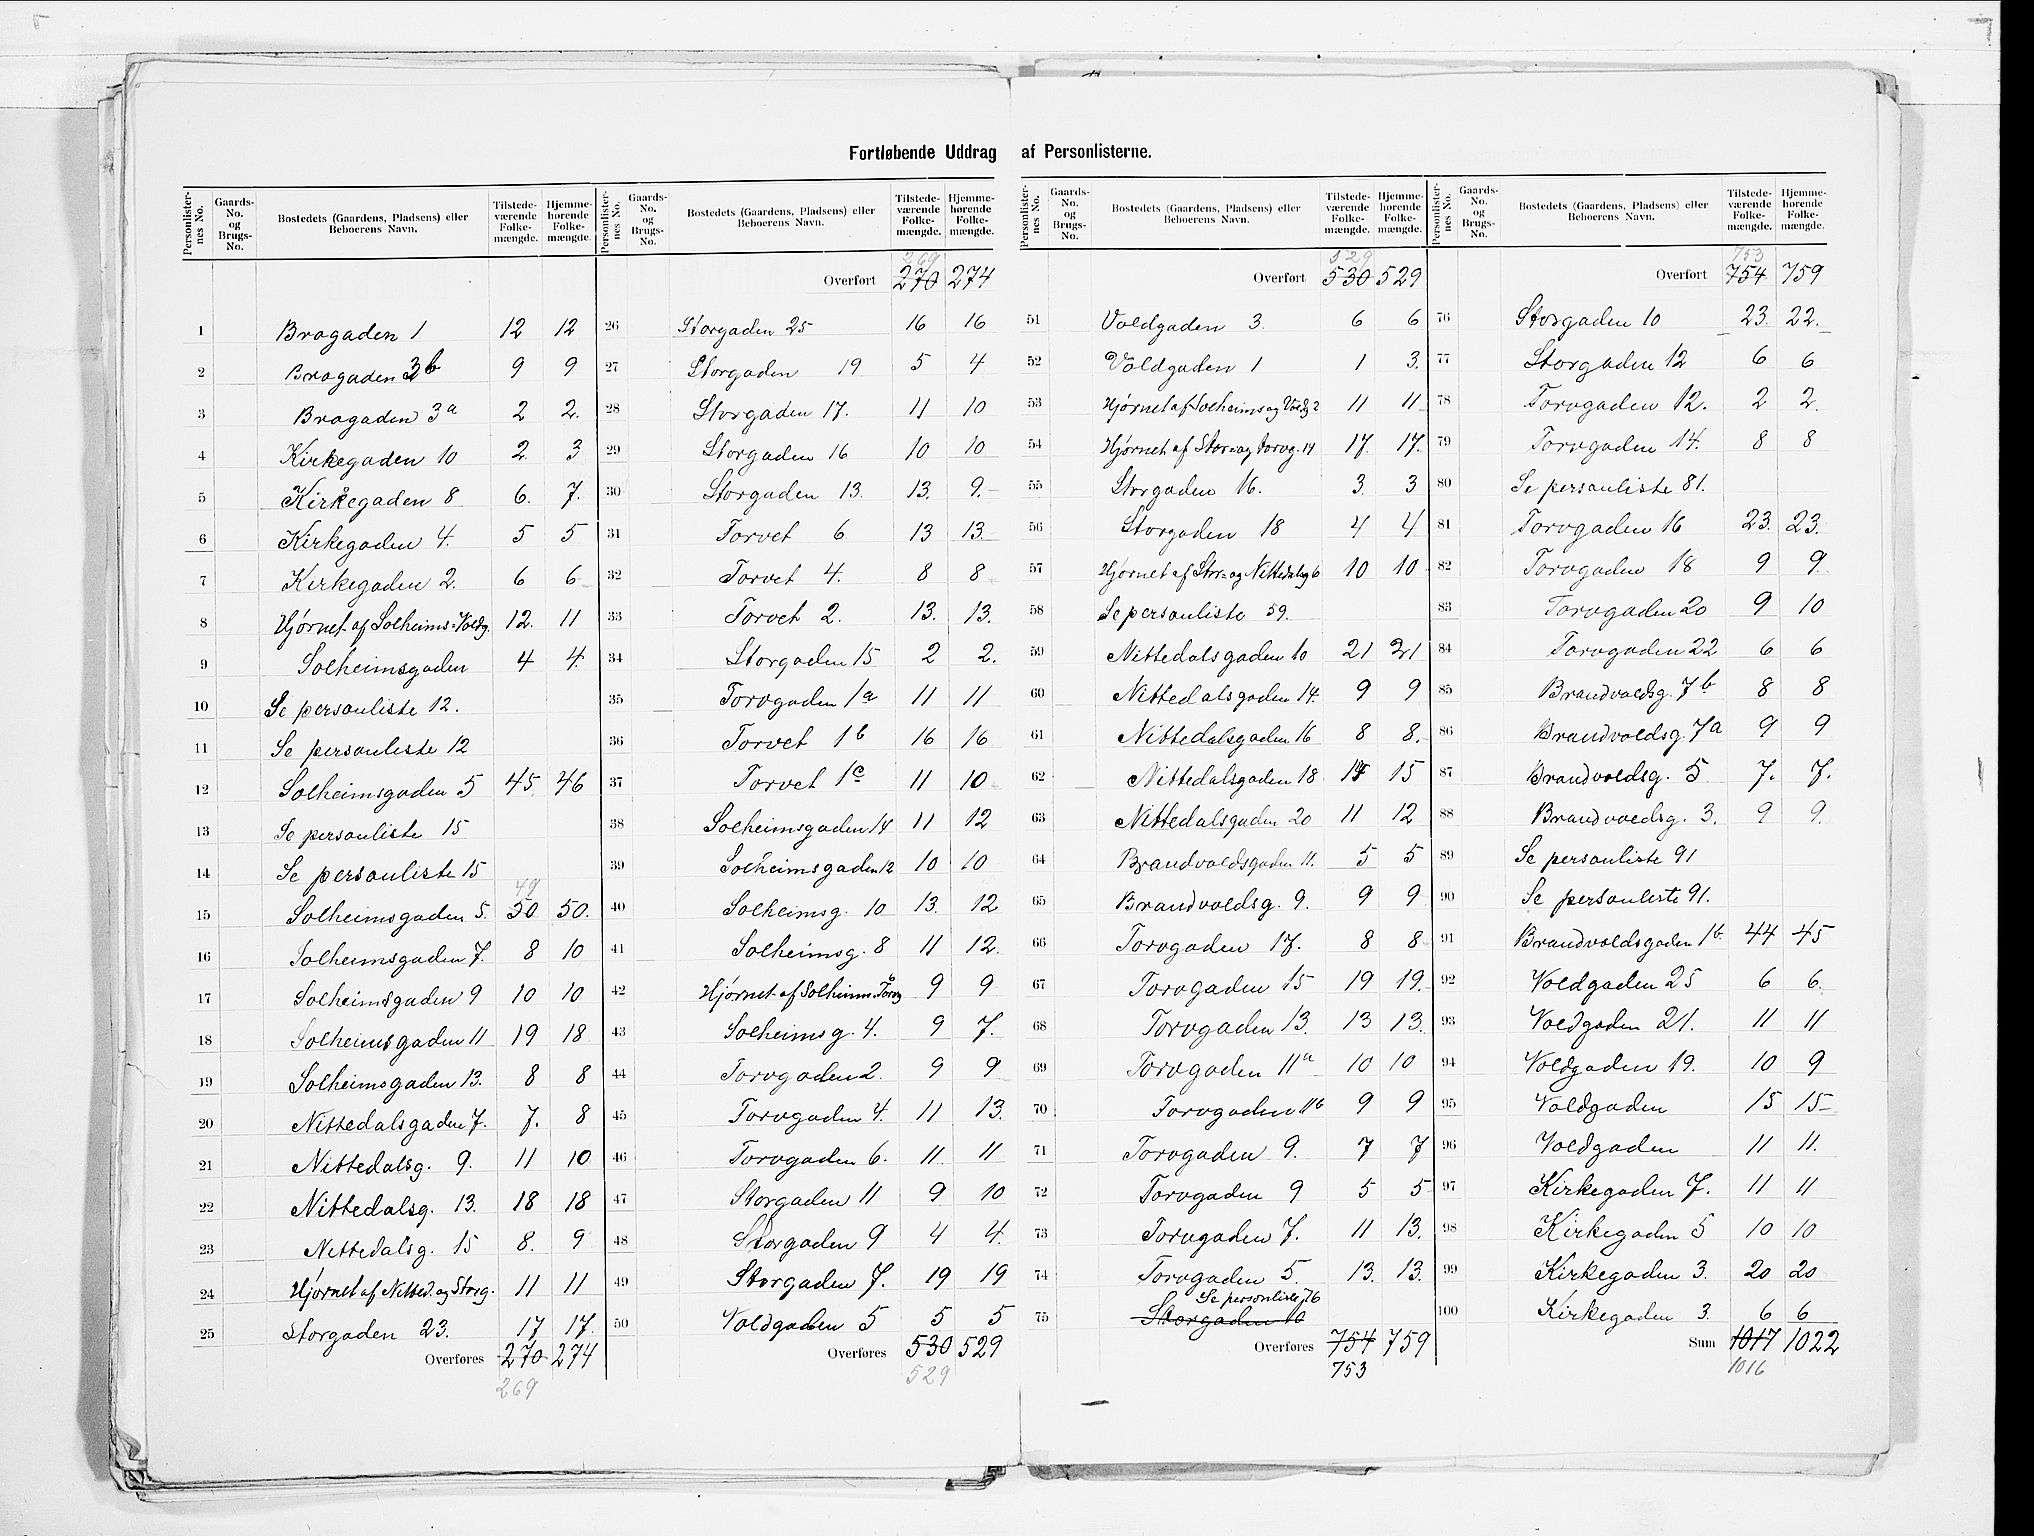 Fortløbende Uddrag af Personlisterne.
Personlister-nes No. Gaards-No. og Brugs-No. Bostedets (Gaardens, Pladsens) eller Beboerens Navn. Tilstede-værende Folke-mængde. Hjemme-hørende Folke-mængde.
1 Brogaden 1 12 12
2 Brogaden 3b 9 9
3 Brogaden 3a 2 2.
4 Kirkegaden 10 2. 3
5 Kirkegaden 8 6. 7.
6 Kirkegaden 4. 5 5
7 Kirkegaden 2. 6 6
8 Hjørnet af Solheims-Voldg. 12. 11
9 Solheimsgaden 4 4.
10 Se personliste 12.
11 Se personliste 12
12 Solheimsgaden 5 45. 46
13 Se personliste 15
14 Se personliste 15
49
15 Solheimsgaden 5. 50 50.
16 Solheimsgaden 7. 8 10
17 Solheimsgaden 9 10 10
18 Solheimsgaden 11 19 18
19 Solheimsgaden 13. 8 8
20 Nittedalsgaden 7. 7. 8
21 Nittedalsg. 9. 11 10
22 Nittedalsg. 13. 18 18
23 Nittedalsg. 15 8. 9
24 Hjørnet af Nitted. og Storg. 11 11
25 Storgaden 23. 17 17.
Overføres 270 274
269
Personlister-nes No. Gaards-No. og Brugs-No. Bostedets (Gaardens, Pladsens) eller Beboerens Navn. Tilstede-værende Folke-mængde. Hjemme-hørende Folke-mængde.
269
Overført 270 274
26 Storgaden 25 16 16
27 Storgaden 19 5 4
28 Storgaden 17. 11 10
29 Storgaden 16 10 10
30 Storgaden 13. 13. 9.
31 Torvet 6 13 13.
32 Torvet 4. 8 8
33 Torvet 2. 13. 13.
34 Storgaden 15 2 2.
35 Torvgaden 1a 11 11
36 Torvet 1b 16 16
37 Torvet 1c 11 10
38 Solheimsgaden 14 11 12
39 Solheimsgaden 12 10 10
40 Solheimsg. 10 13. 12
41 Solheimsg. 8 11 12.
42 Hjørnet af Solheims-Torvg 6 9 9
43 Solheimsg. 4. 9 7.
44 Torvgaden 2. 9 9
45 Torvgaden 4. 11 13.
46 Torvgaden 6. 11. 11
47 Storgaden 11 9 10
48 Storgaden 9 4 4.
49 Storgaden 7. 19 19
50 Voldgaden 5 5 5
Overføres 530 529
529
Personlister-nes No. Gaards-No. og Brugs-No. Bostedets (Gaardens, Pladsens) eller Beboerens Navn. Tilstede-værende Folke-mængde. Hjemme-hørende Folke-mængde.
529
Overført 530 529
51 Voldgaden 3. 6 6
52 Voldgaden 1 1 3.
53 Hjørnet af Solheims og Voldg 2 11 11.
54 Hjørnet af Stor- og Torvg. 14 17. 17.
55 Storgaden 16. 3. 3
56 Storgaden 18 4 4
57 Hjørnet af Stor- og Nittedalsg 6 10 10
58 Se personliste 59.
59 Nittedalsgaden 10 21 21
60 Nittedalsgaden 14. 9 9
61 Nittedalsgaden 16 8 8.
62 Nittedalsgaden 18 15
63 Nittedalsgaden 20 11 12
64 Brandvoldsgaden 11. 5 5
65 Brandvoldsg. 9. 9 9
66 Torvgaden 17. 8 8
67 Torvgaden 15 19 19.
68 Torvgaden 13. 13 13.
69 Torvgaden 11a 10 10
70 Torvgaden 11b 9 9
71 Torvgaden 9. 7 7
72 Torvgaden 9 5 5
73 Torvgaden 7. 11 13.
74 Torvgaden 5. 13. 13.
Se personliste 76
75 Storgaden 10
Overføres 754 759
753
Personlister-nes No. Gaards-No. og Brugs-No. Bostedets (Gaardens, Pladsens) eller Beboerens Navn. Tilstede-værende Folke-mængde. Hjemme-hørende Folke-mængde.
753
Overført 754 759
76 Storgaden 10 23. 22.
77 Storgaden 12 6 6
78 Torvgaden 12. 2 2.
79 Torvgaden 14. 8 8
80 Se personliste 81.
81 Torvgaden 16 23. 23.
82 Torvgaden 18 9 9.
83 Torvgaden 20 9 10
84 Torvgaden 22 6 6
85 Brandvoldsg. 7b 8 8
86 Brandvoldsg. 7a 9 9
87 Brandvoldsg. 5 7. 7.
88 Brandvoldsg. 3. 9 9.
89 Se personliste 91
90 Se personliste 91.
91 Brandvoldsgaden 1b 44 45
92 Voldgaden 25 6 6.
93 Voldgaden 21. 11 11
94 Voldgaden 19. 10 9
95 Voldgaden 15 15
96 Voldgaden 11 11.
97 Kirkegaden 7. 11 11
98 Kirkegaden 5 10 10
99 Kirkegaden 3. 20 20
100 Kirkegaden 3. 6 6
Sum 1017 1022
1016